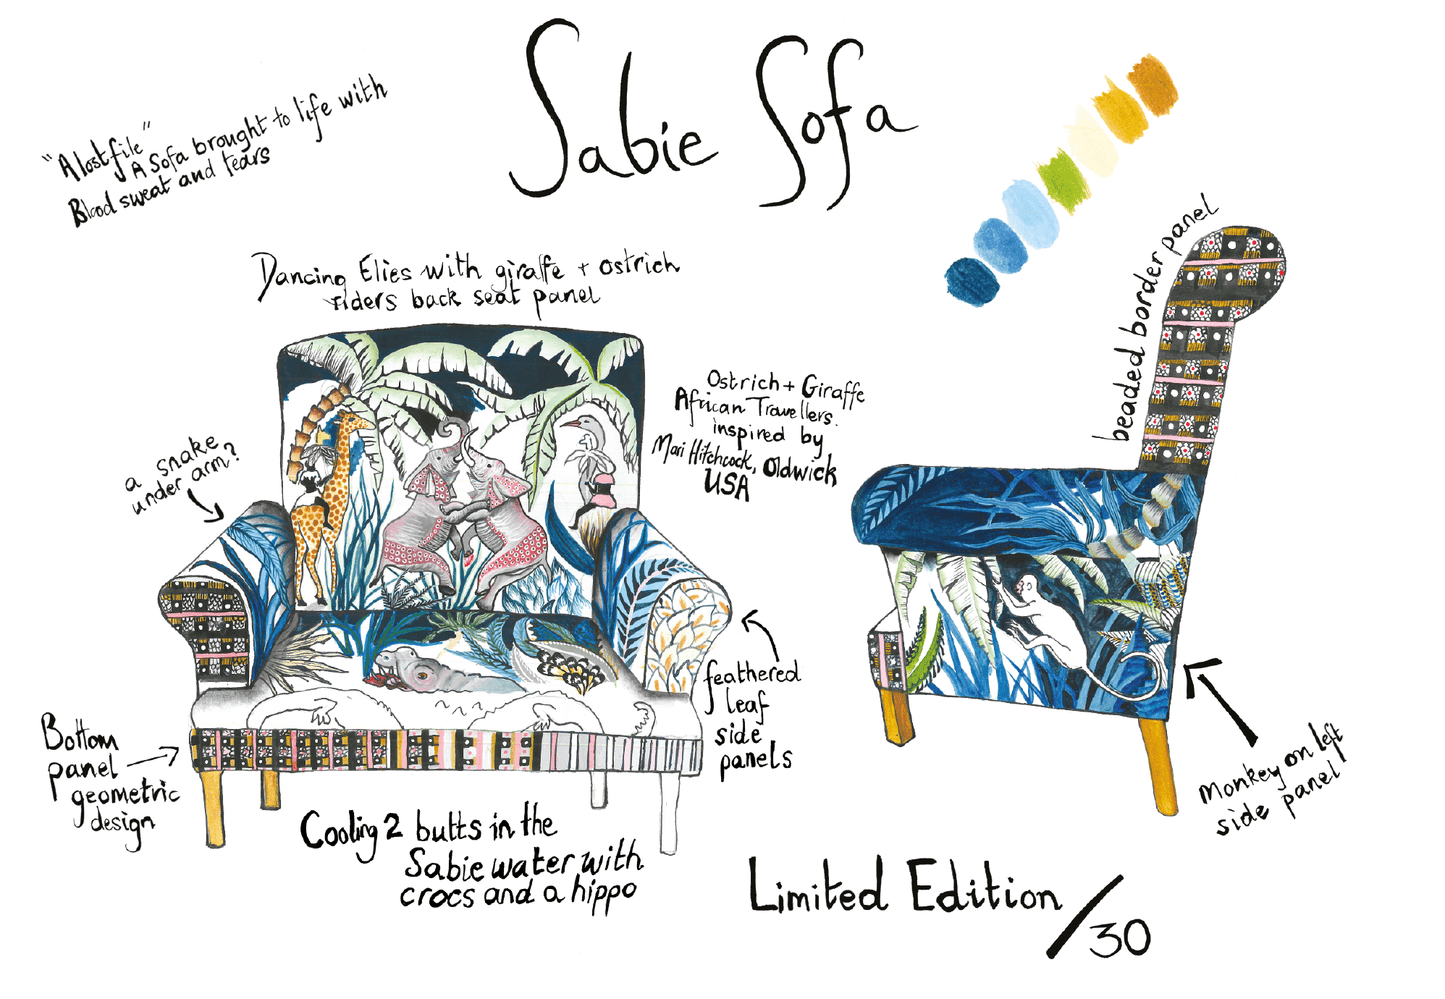 Sabie Sofa
"A lost file"
A Sofa brought to life with
Blood sweat and tears
Dancing Elies with giraffe + ostrich
riders back seat panel
Ostrich + Giraffe
African Travellers.
inspired by
Mari Hitchcock, Oldwick
USA
beaded border panel
a snake
under arm?
feathered
leaf
side
panels
Bottom
panel
geometric
design
Cooling 2 butts in the
Sabie water with
crocs and a hippo
Monkey on left
side panel
Limited Edition
/30